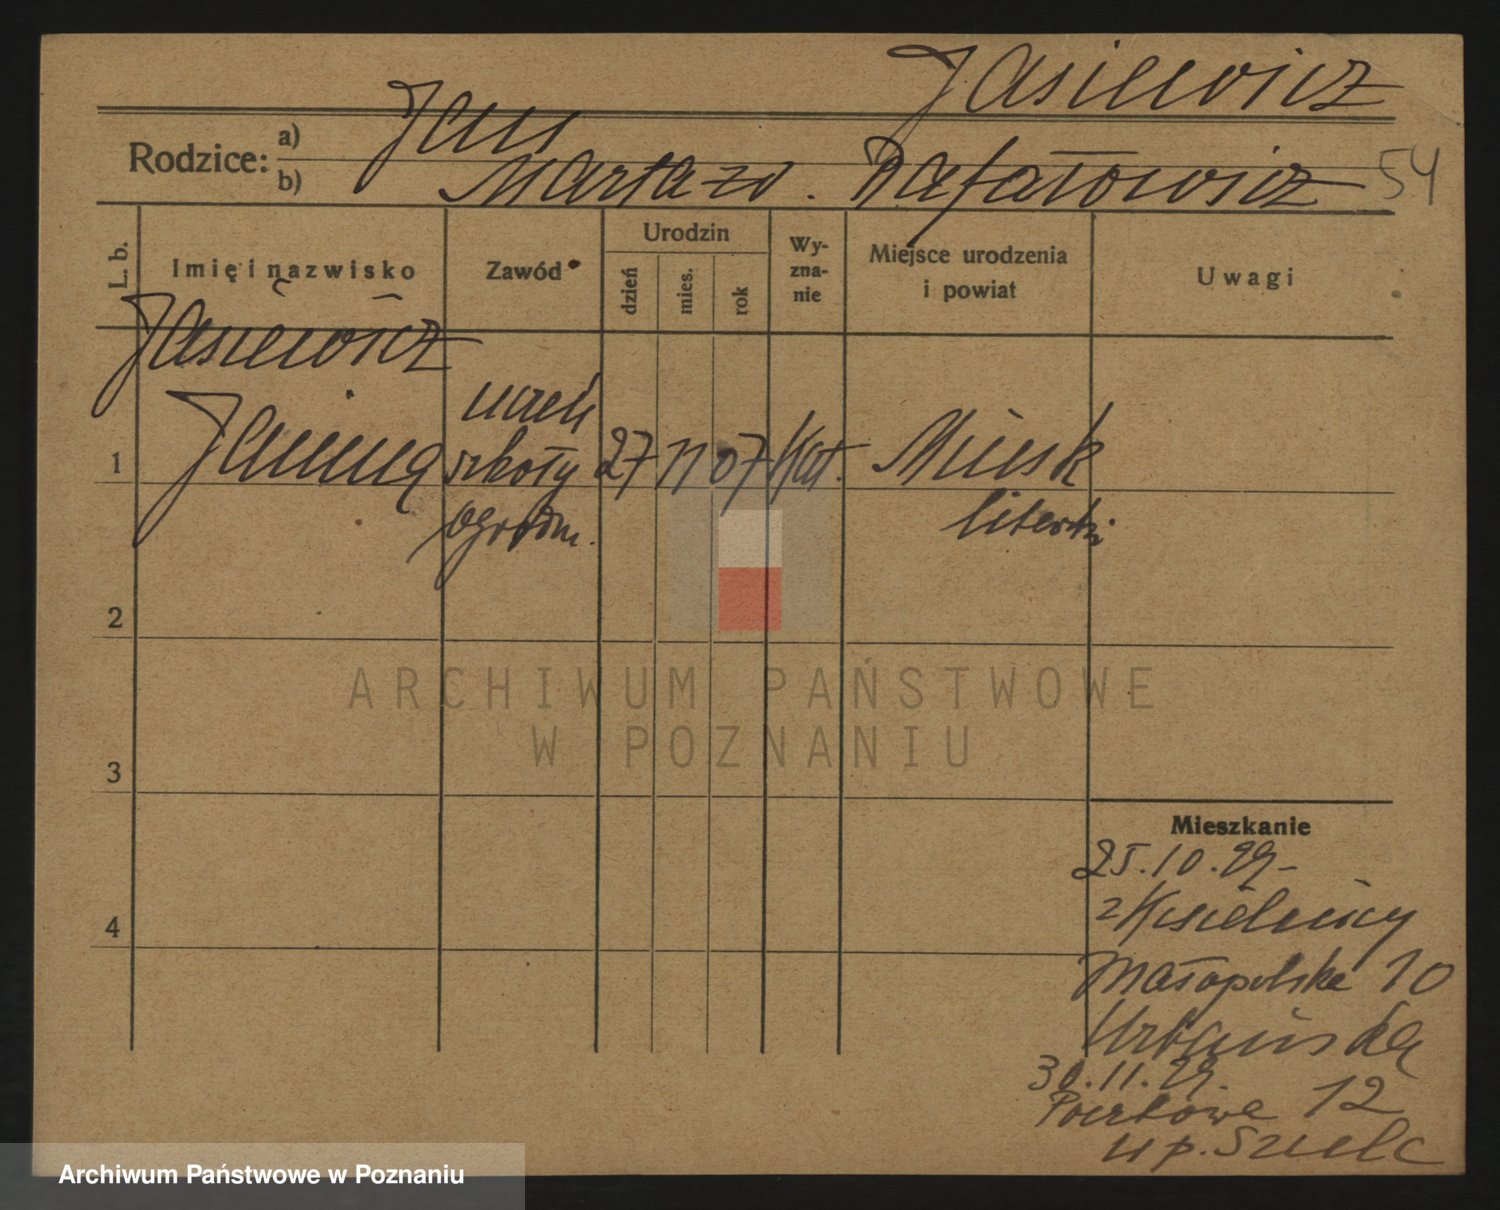 Jasiewicz
Rodzice: a) Jan
b) Marta zd. Rafałowicz 54
L. b. Imię i nazwisko Zawód Urodzin dzień mies. rok Wy-zna-nie Miejsce urodzenia i powiat Uwagi
Jasiewicz
1 Janina uczeń szkoły ogrodn. 27 11 07 Kat. Mińsk litewski
2
3
4
Mieszkanie
25.10.29-
z
Małopolska 10
Urbańska
30.11.29.
Pocztowa 12
u p. Szulc
ARCHIWUM PAŃSTWOWE
W POZNANIU
Archiwum Państwowe w Poznaniu